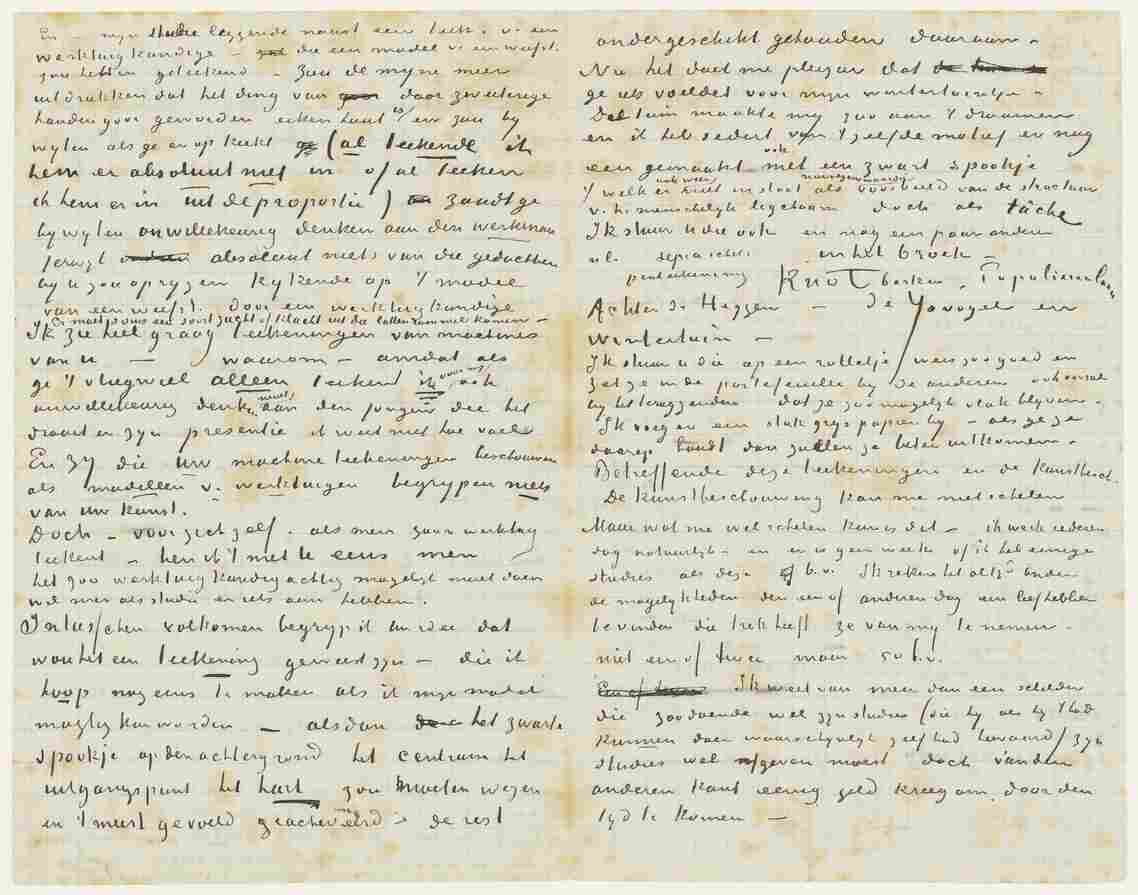 En – mijn studie leggende naast een teek. v. een
werktuigkundige – die een model v. een weefst.
zou hebben geteekend – zou de mijne meer
uitdrukken dat het ding van door zweeterige
handen goor geworden eiken hout is/en zou bij
wijlen als ge er op kiekt (al teekende ik
hem er absoluut niet in of al teeken
ik hem er in uit de proportie) zoudt ge
bijwijlen onwillekeurig denken aan den werkman
terwijl absoluut niets van die gedachten
bij u zou oprijzen kijkende op 't model
van een weefst. door een werktuigkundige
Er moet soms een soort zucht of klacht uit die lattenrommel komen –
Ik zie heel graag teekeningen van machines
van u – waarom – omdat als
ge 't vliegwiel alleen teekent ik voor mij ook
onwillekeurig denk moet aan den jongen die het
draait en zijn presentie ik weet niet hoe voele
En zij die uw machine teekeningen beschouwen
als modellen v. werktuigen begrijpen niets
van uw kunst.
Doch – voor zich zelf. als men zoo'n werktuig
teekent – ben ik 't met U eens men
het zoo werktuigkundigachtig mogelijk moet doen
wil men als studie er iets aan hebben.
Intusschen volkomen begrijp ik uw idee dat
was het een teekening geweest zijn – die ik
hoop nog eens te maken als ik mijn model
magtig kan worden – alsdan het zwarte
spookje op den achtergrond het centrum het
uitgangspunt het hart zou moeten wezen
en 't meest gevoeld geacheveerd – de rest
ondergeschikt gehouden daaraan –
Nu het doet me plezier dat
ge iets voeldet voor mijn wintertuintje –
Die tuin maakte mij zoo aan 't droomen
en ik heb sedert van 't zelfde motief er nog
een gemaakt ook met een zwart spookje
't welk er ook weer niet in staat als navolgenswaardig voorbeeld van de structuur
v. h. menschelijk ligchaam doch als tâche
Ik stuur u die ook en nog een paar anderen
nl. sepia schets in het broek –
penteekening Knotberken, Populierenlaan
Achter de Heggen – de IJsvogel en
Wintertuin –
Ik stuur u die op een rolletje wees zoo goed en
zet ze in de portefeuille bij de anderen ook vooral
bij het terugzenden dat ze zoo mogelijk vlak blijven.
Ik voeg er een stuk grijs papier bij – als ge ze
daarop houdt dan zullen ze beter uitkomen.
Betreffende deze teekeningen en de Kunstbesch.
De kunstbeschouwing kan me niet schelen
Maar wat me wel schelen kan is dit – ik werk iederen
dag natuurlijk – en er is geen week of ik heb eenige
studies als deze b.v. Ik reken het altijd onder
de mogelijkheden den een of anderen dag een liefhebber
te vinden die trek heeft ze van mij te nemen –
niet een of twee maar 50 b.v.
Een of twee Ik weet van meer dan een schilder
die zoodoende wel zijn studies (die hij als hij 't had
kunnen doen waarschijnlijk zelf had bewaard) zijn
studies wel afgeven moest doch van den
anderen kant eenig geld kreeg om door den
tijd te komen –